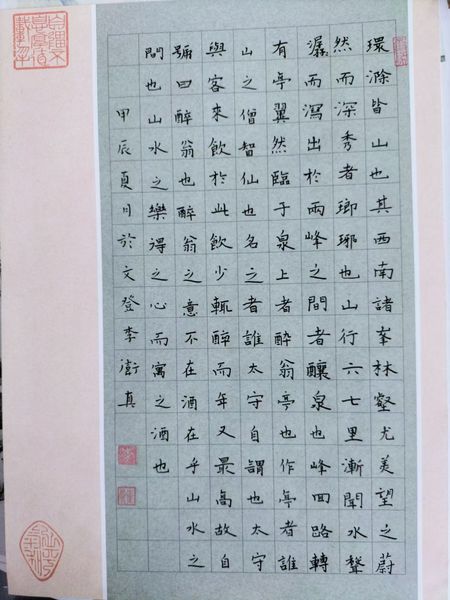 環滁皆山也其西南諸峯林壑尤美望之蔚
然而深秀者瑯琊也山行六七里漸聞水聲
潺而瀉出於兩峰之間者釀泉也峰回路轉
有亭翼然臨于泉上者醉翁亭也作亭者誰
山之僧智仙也名之者誰太守自謂也太守
與客來飲於此飲少輒醉而年又最高故自
號曰醉翁也醉翁之意不在酒在乎山水之
間也山水之樂得之心而寓之酒也
甲辰夏月於文登李真